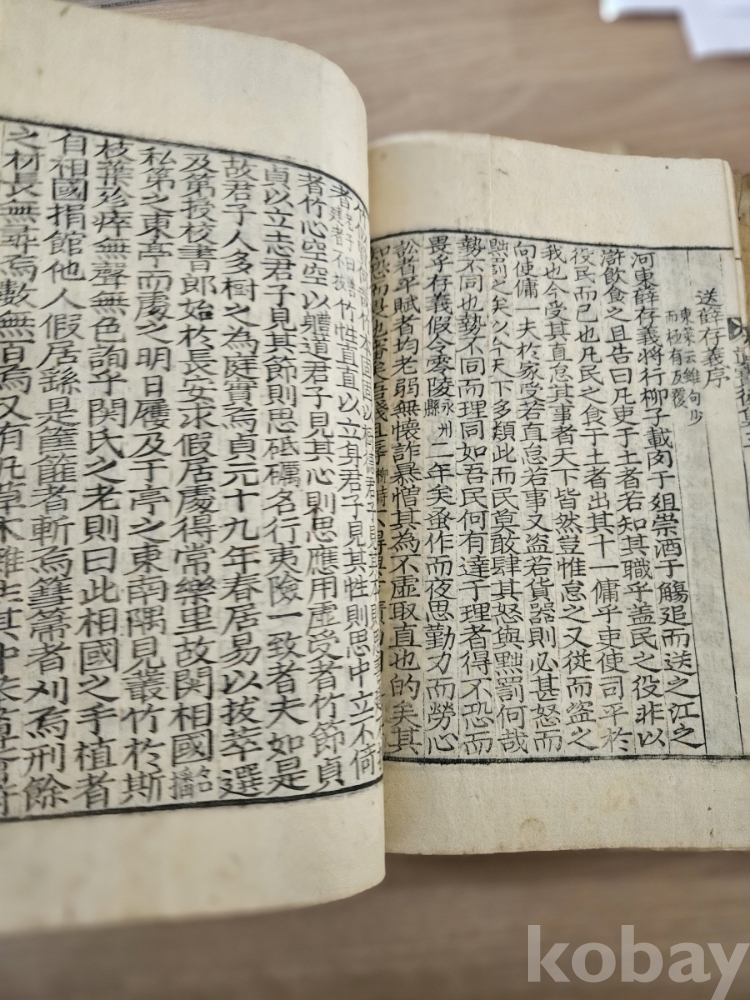 送薛存義序 東萊云雖句少而極有反覆
河東薛存義將行柳子載肉于俎崇酒于觴追而送之江之
滸飲食之且告曰凡吏于土者若知其職乎盖民之役非以
役民而已也凡民之食于土者出其十一傭乎吏使司平於
我也今受其直怠其事者天下皆然豈惟怠之又從而盜之
向使傭一夫於家受若直怠若事又盜若貨器則必甚怒而
黜罰之矣以今天下多類此而民莫敢肆其怒與黜罰何哉
勢不同也勢不同而理同如吾民何有達于理者得不恐而
畏乎存義假令零陵永州縣二年矣蚤作而夜思勤力而勞心
訟者平賦者均老弱無懷詐暴憎其為不虛取直也的矣其
知恐而畏也審矣吾賤且辱
者竹性直直以立身君子見其性則思中立不倚
者竹心空空以軆道君子見其心則思應用虛受者竹節貞
貞以立志君子見其節則思砥礪名行夷險一致者夫如是
故君子人多樹之為庭實焉貞元十九年春居易以拔萃選
及第授校書郎始於長安求假居處得常樂里故関相國名播
私第之東亭而處之明日屨及于亭之東南隅見叢竹於斯
枝葉殄瘁無聲無色詢乎関氏之老則曰此相國之手植者
自相國捐館他人假居繇是筐篚者斬焉篲箒者刈焉刑餘
之材長無尋焉數無百焉又有凡草木雜生其中
kobay